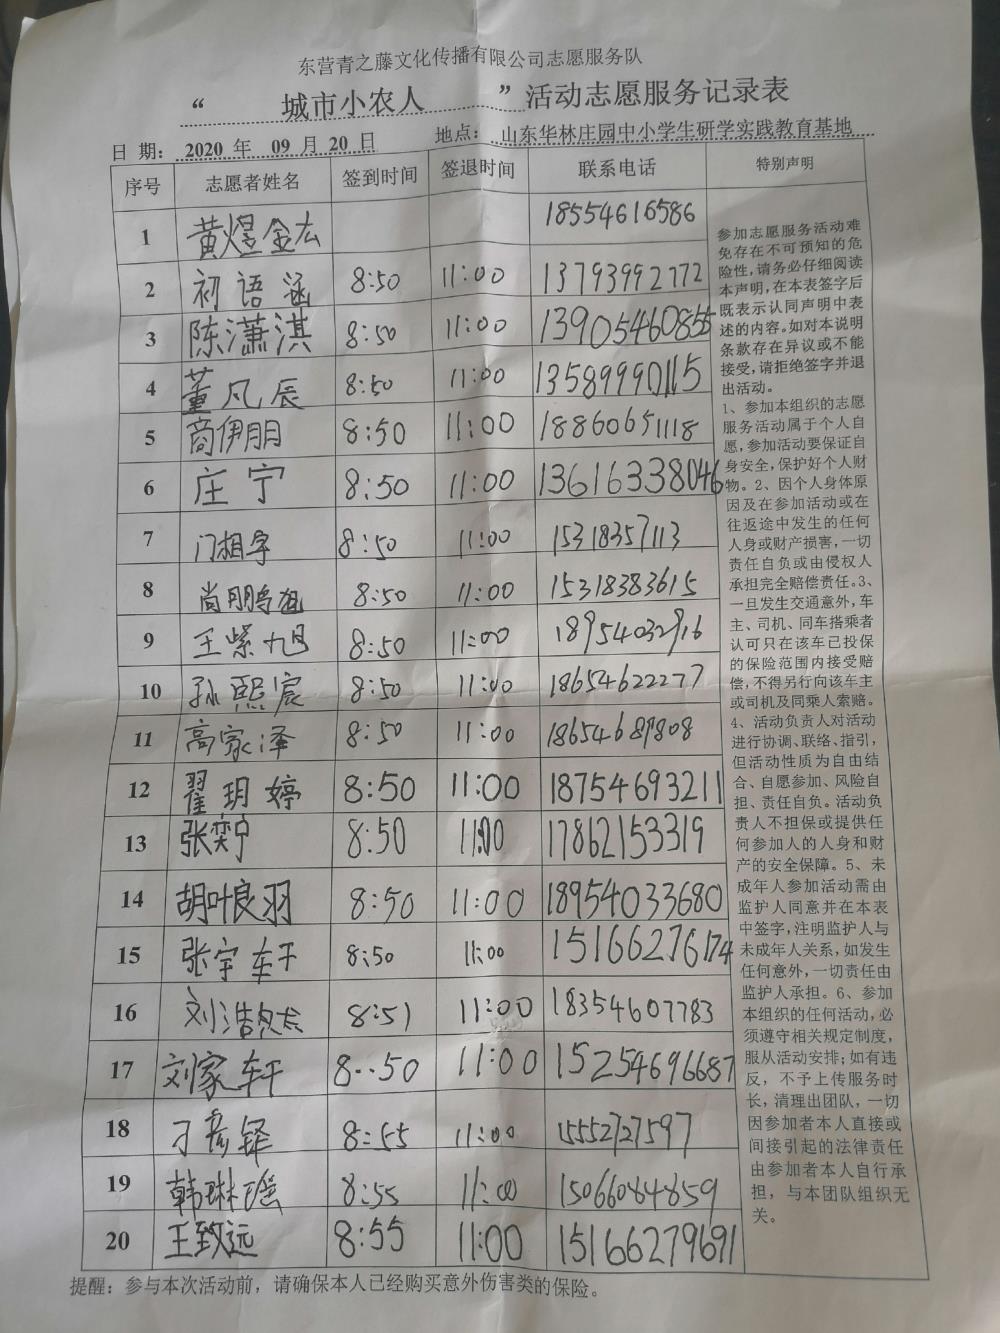 东营青之藤文化传播有限公司志愿服务队
“ 城市小农人 ”活动志愿服务记录表
日 期: 2020 年 09 月 20 日 地点: 山东华林庄园中小学生研学实践教育基地
序号 志愿者姓名 签到时间 签退时间 联系电话 特别声明
1 黄煜金厷 18554616586
2 初语涵 8:50 11:00 13793992772
3 陈潇淇 8:50 11:00 13905460855
4 董凡辰 8:50 11:00 13589990115
5 商伊朋 8:50 11:00 18860651118
6 庄宁 8:50 11:00 13616338046
7 门相宇 8:50 11:00 15318357113
8 尚朋 8:50 11:00 15318383615
9 王紫旭 8:50 11:00 18954032916
10 孙熙宸 8:50 11:00 18654622277
11 高家泽 8:50 11:00 18654689808
12 翟玥婷 8:50 11:00 18754693211
13 张奕宁 8:50 11:00 17862153319
14 胡叶良羽 8:50 11:00 18954033680
15 张宇轩 8:50 11:00 15166276174
16 刘浩然 8:51 11:00 18354607783
17 刘家轩 8:50 11:00 15254696687
18 刁彦铎 8:55 11:00 15552727597
19 韩琳瑶 8:55 11:00 15066084859
20 王致远 8:55 11:00 15166279691
参加志愿服务活动难
免存在不可预知的危
险性,请务必仔细阅读
本声明,在本表签字后
既表示认同声明中表
述的内容。如对本说明
条款存在异议或不能
接受,请拒绝签字并退
出活动。
1、参加本组织的志愿
服务活动属于个人自
愿,参加活动要保证自
身安全,保护好个人财
物。2、因个人身体原
因及在参加活动或在
往返途中发生的任何
人身或财产损害,一切
责任自负或由侵权人
承担完全赔偿责任。3、
一旦发生交通意外,车
主、司机、同车搭乘者
认可只在该车已投保
的保险范围内接受赔
偿,不得另行向该车主
或司机及同乘人索赔。
4、活动负责人对活动
进行协调、联络、指引,
但活动性质为自由结
合、自愿参加、风险自
担、责任自负。活动负
责人不担保或提供任
何参加人的人身和财
产的安全保障。5、未
成年人参加活动需由
监护人同意并在本表
中签字,注明监护人与
未成年人关系,如发生
任何意外,一切责任由
监护人承担。6、参加
本组织的任何活动,必
须遵守相关规定制度,
服从活动安排;如有违
反,不予上传服务时
长,清理出团队,一切
因参加者本人直接或
间接引起的法律责任
由参加者本人自行承
担,与本团队组织无
关。
提醒:参与本次活动前,请确保本人已经购买意外伤害类的保险。